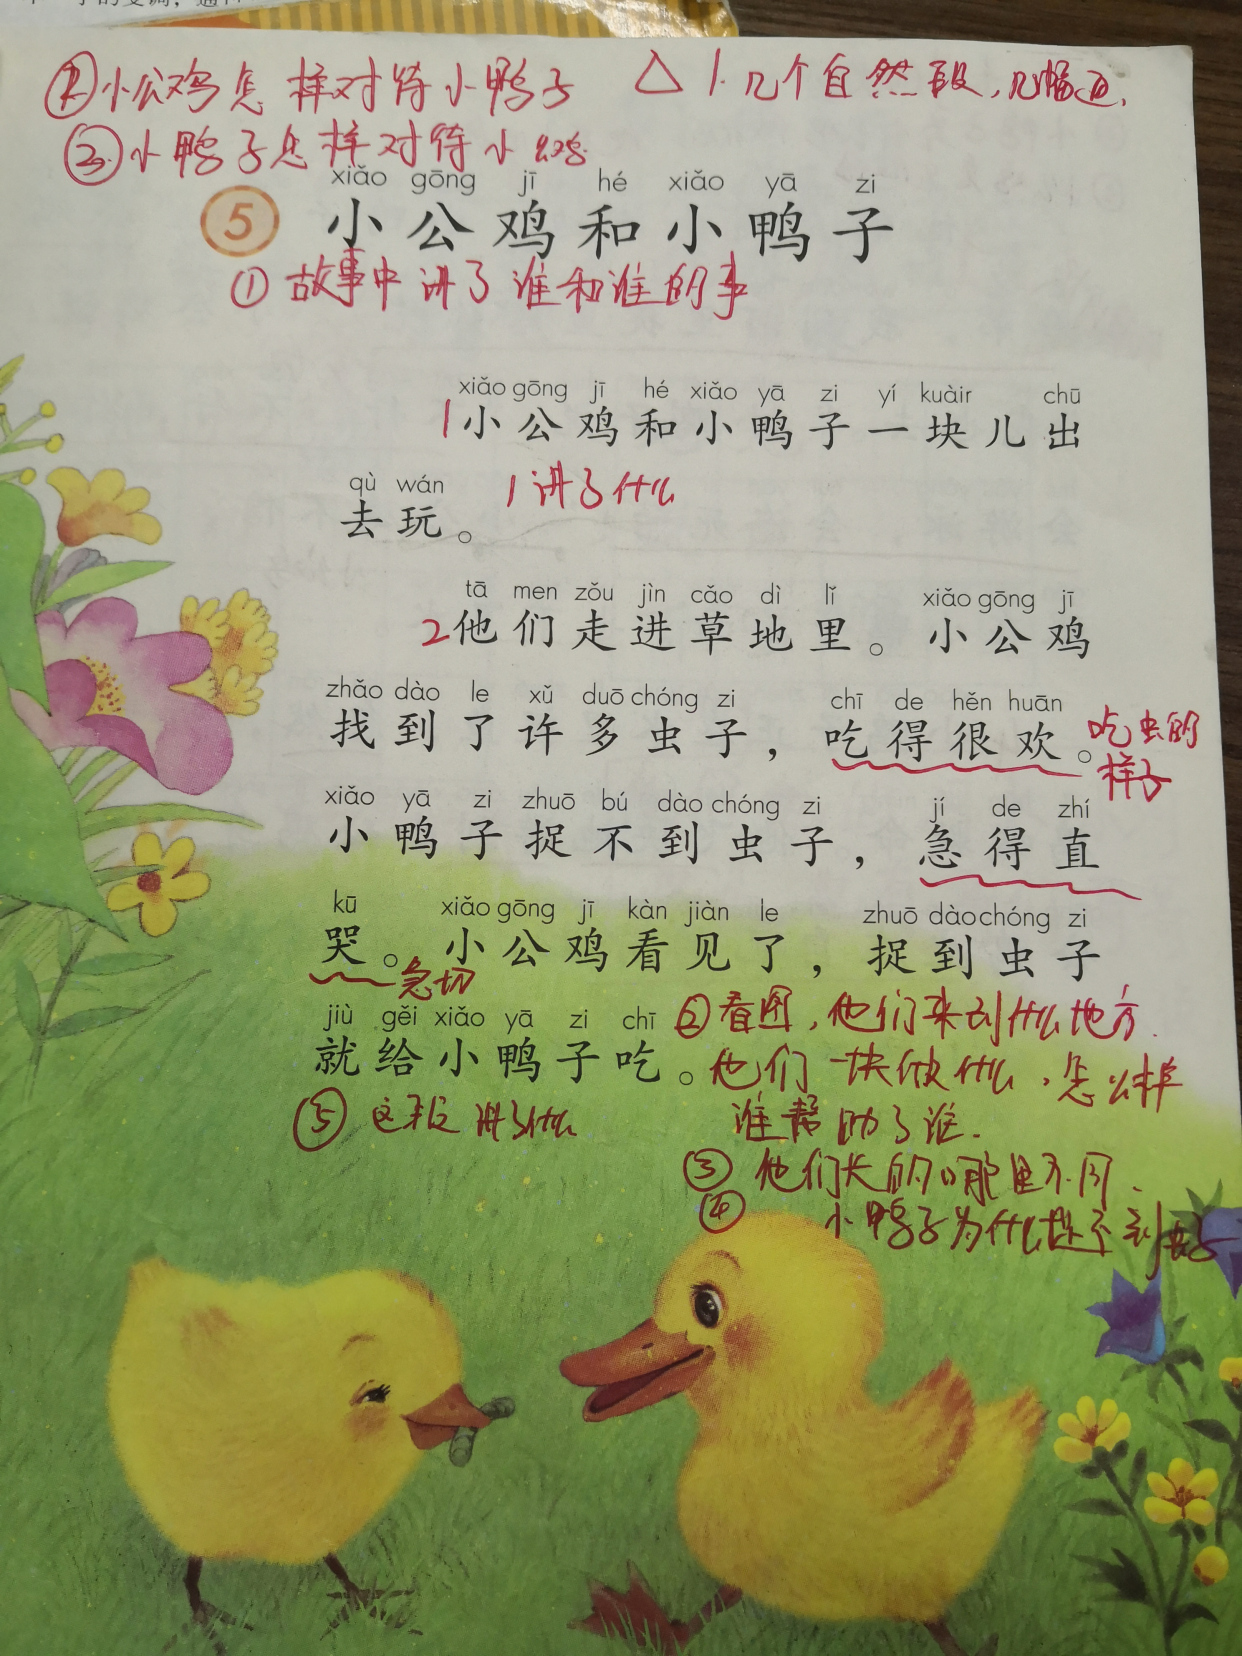 小公鸡怎样对待小鸭子
△ 1.几个自然段,几幅画.
③小鸭子怎样对待小鸡
xiǎo gōng jī hé xiǎo yā zi
5 小公鸡和小鸭子
①故事中讲了谁和谁的事
xiǎo gōng jī hé xiǎo yā zi yí kuàir chū
1小公鸡和小鸭子一块儿出
qù wán
去玩。
1讲了什么
tā men zǒu jìn cǎo dì lǐ xiǎo gōng jī
2他们走进草地里。小公鸡
zhǎo dào le xǔ duō chóng zi chī de hěn huān
找到了许多虫子，吃得很欢。
吃虫的
样子
xiǎo yā zi zhuō bú dào chóng zi jí de zhí
小鸭子捉不到虫子，急得直
kū xiǎo gōng jī kàn jiàn le zhuō dào chóng zi
哭。小公鸡看见了，捉到虫子
急切
jiù gěi xiǎo yā zi chī
就给小鸭子吃。
②看图,他们来到什么地方.
他们一块做什么,怎么样
谁帮助了谁.
⑤这段讲了什么
③他们长的哪里不同.
④小鸭子为什么捉不到虫子